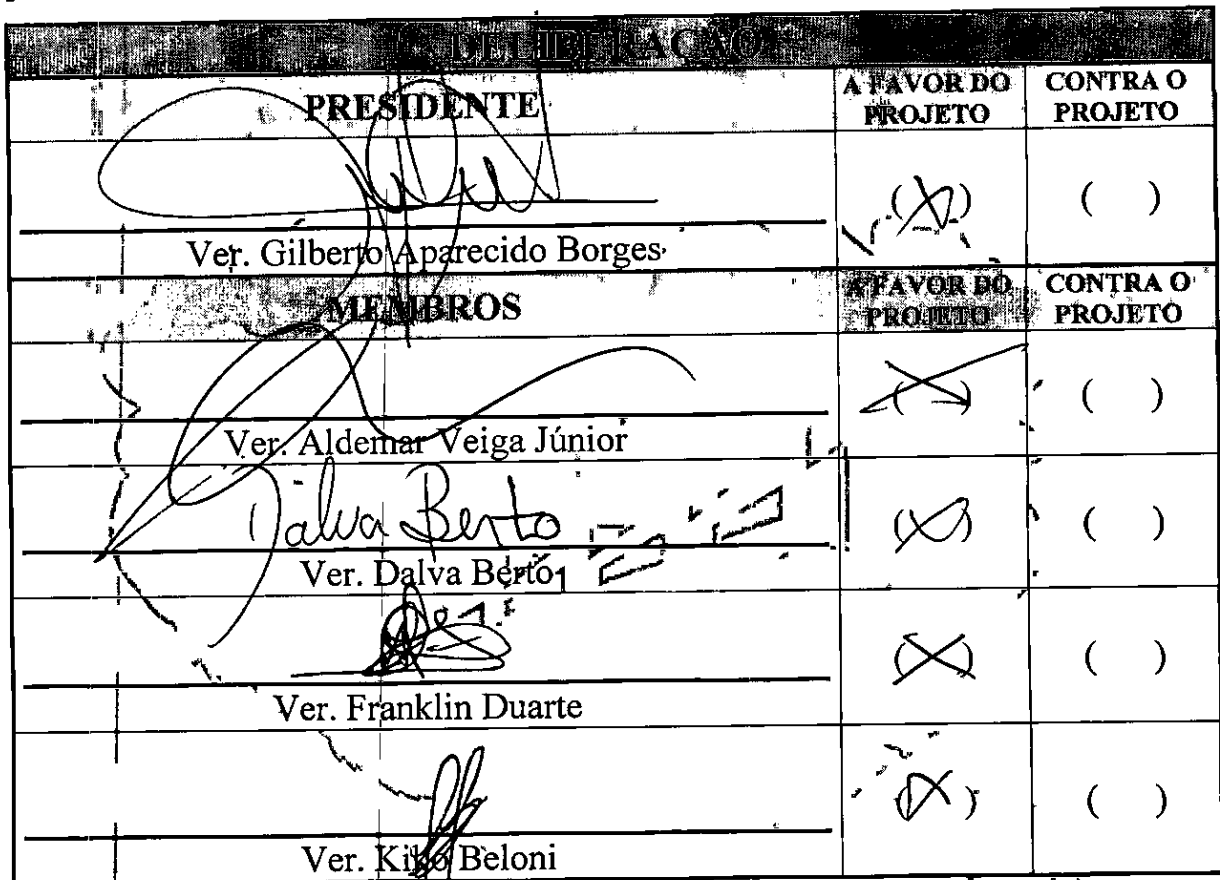 DELIBERAÇÃO
PRESIDENTE
A FAVOR DO PROJETO
CONTRA O PROJETO
(X)
( )
Ver. Gilberto Aparecido Borges
MEMBROS
A FAVOR DO PROJETO
CONTRA O PROJETO
(X)
( )
Ver. Aldemar Veiga Júnior
Dalva Berto
(X)
( )
Ver. Dalva Berto
(X)
( )
Ver. Franklin Duarte
(X)
( )
Ver. Kiko Beloni